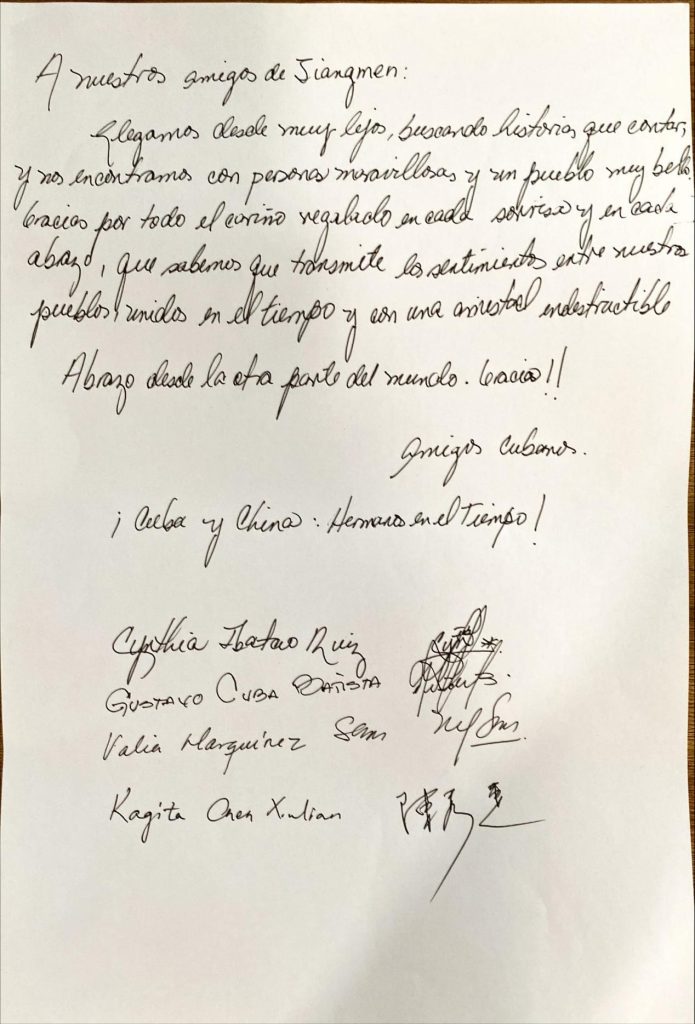 A nuestros amigos de Jiangmen:
Llegamos desde muy lejos, buscando historias que contar,
y nos encontramos con personas maravillosas y un pueblo muy bello.
Gracias por todo el cariño regalado en cada sonrisa y en cada
abrazo, que sabemos que transmite los sentimientos entre nuestros
pueblos, unidos en el tiempo y con una amistad indestructible
Abrazo desde la otra parte del mundo. Gracias!!
Amigos Cubanos.
¡Cuba y China: Hermanos en el Tiempo!
Cynthia Ruiz
Gustavo Cuba Batista
Valia Marquínez Sam
Kagita Chen Xiulian 陳